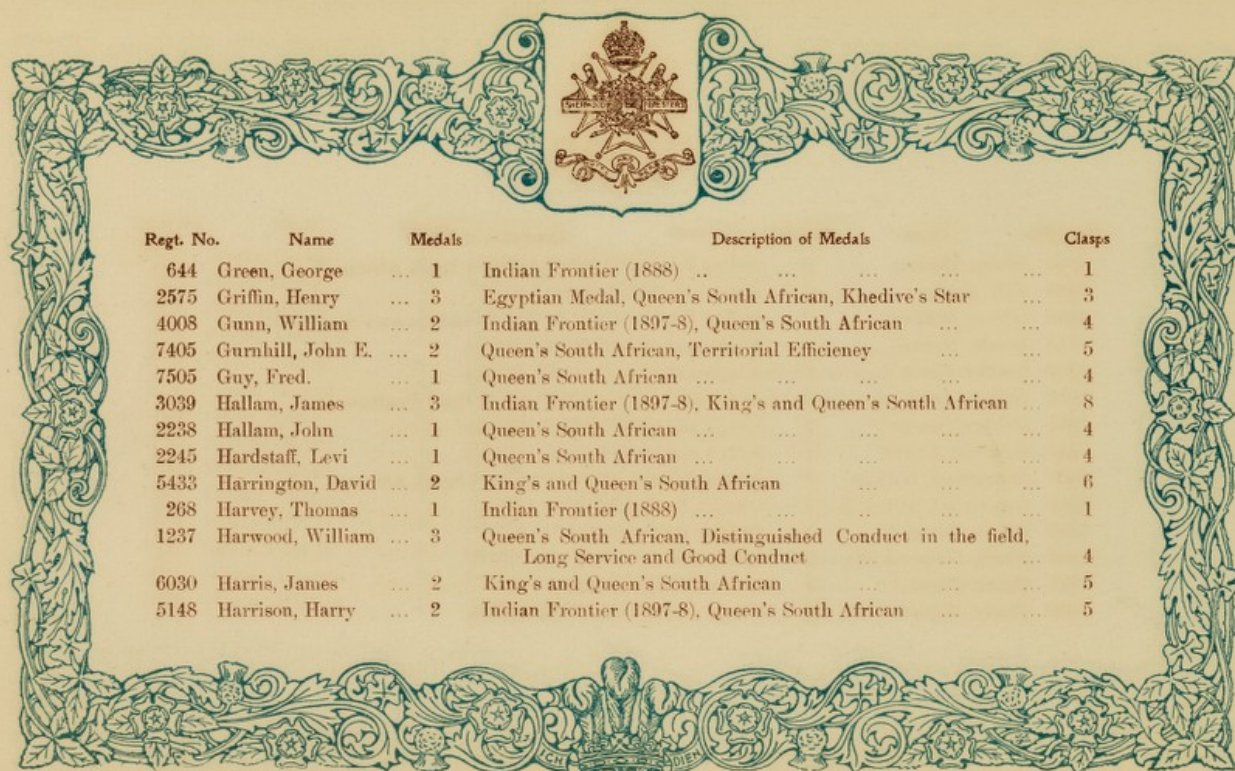 SHERWOOD FORESTERS
Regt. No. Name Medals Description of Medals Clasps
644 Green, George ... 1 Indian Frontier (1888) .. ... ... ... ... 1
2575 Griffin, Henry ... 3 Egyptian Medal, Queen's South African, Khedive's Star ... 3
4008 Gunn, William ... 2 Indian Frontier (1897-8), Queen's South African ... ... 4
7405 Gurnhill, John E. ... 2 Queen's South African, Territorial Efficieney ... ... 5
7505 Guy, Fred. ... 1 Queen's South African ... ... ... ... ... 4
3039 Hallam, James ... 3 Indian Frontier (1897-8), King's and Queen's South African ... 8
2238 Hallam, John ... 1 Queen's South African ... ... ... ... ... 4
2245 Hardstaff, Levi ... 1 Queen's South African ... ... ... ... ... 4
5433 Harrington, David ... 2 King's and Queen's South African ... ... ... 6
268 Harvey, Thomas ... 1 Indian Frontier (1888) ... ... ... ... ... 1
1237 Harwood, William ... 3 Queen's South African, Distinguished Conduct in the field,
Long Service and Good Conduct ... ... ... 4
6030 Harris, James ... 2 King's and Queen's South African ... ... ... 5
5148 Harrison, Harry ... 2 Indian Frontier (1897-8), Queen's South African ... ... 5
CH DIEN